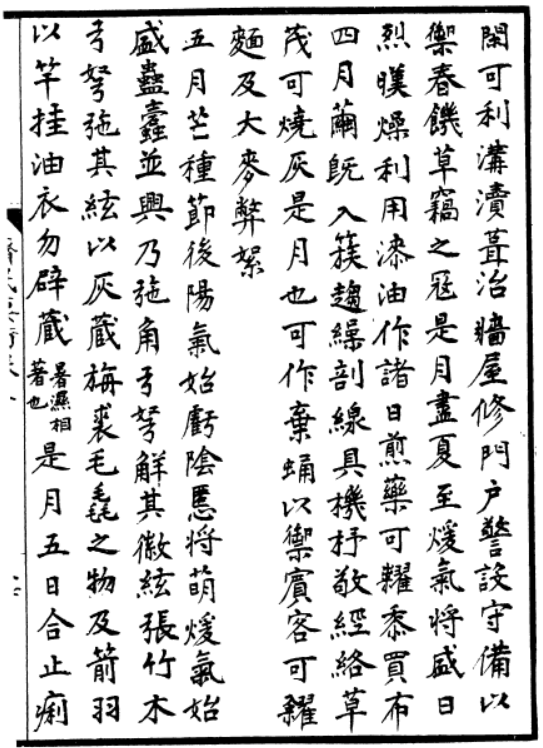 閑可利溝瀆葺治牆屋修門户警設守備以
禦春饑草竊之冦是月盡夏至煖氣將盛日
烈暵燥利用漆油作諸日煎藥可糶黍買布
四月繭既入簇趨繰剖線具機杼敬經絡草
茂可燒灰是月也可作棄蛹以禦賓客可糴
麵及大麥弊絮
五月芒種節後陽氣始虧陰慝將萌煖氣始
盛蠱蠹並興乃弛角弓弩解其徽絃張竹木
弓弩弛其絃以灰藏旃裘毛毳之物及箭羽
以竿挂油衣勿辟藏
暑濕相
著也
是月五日合止痢